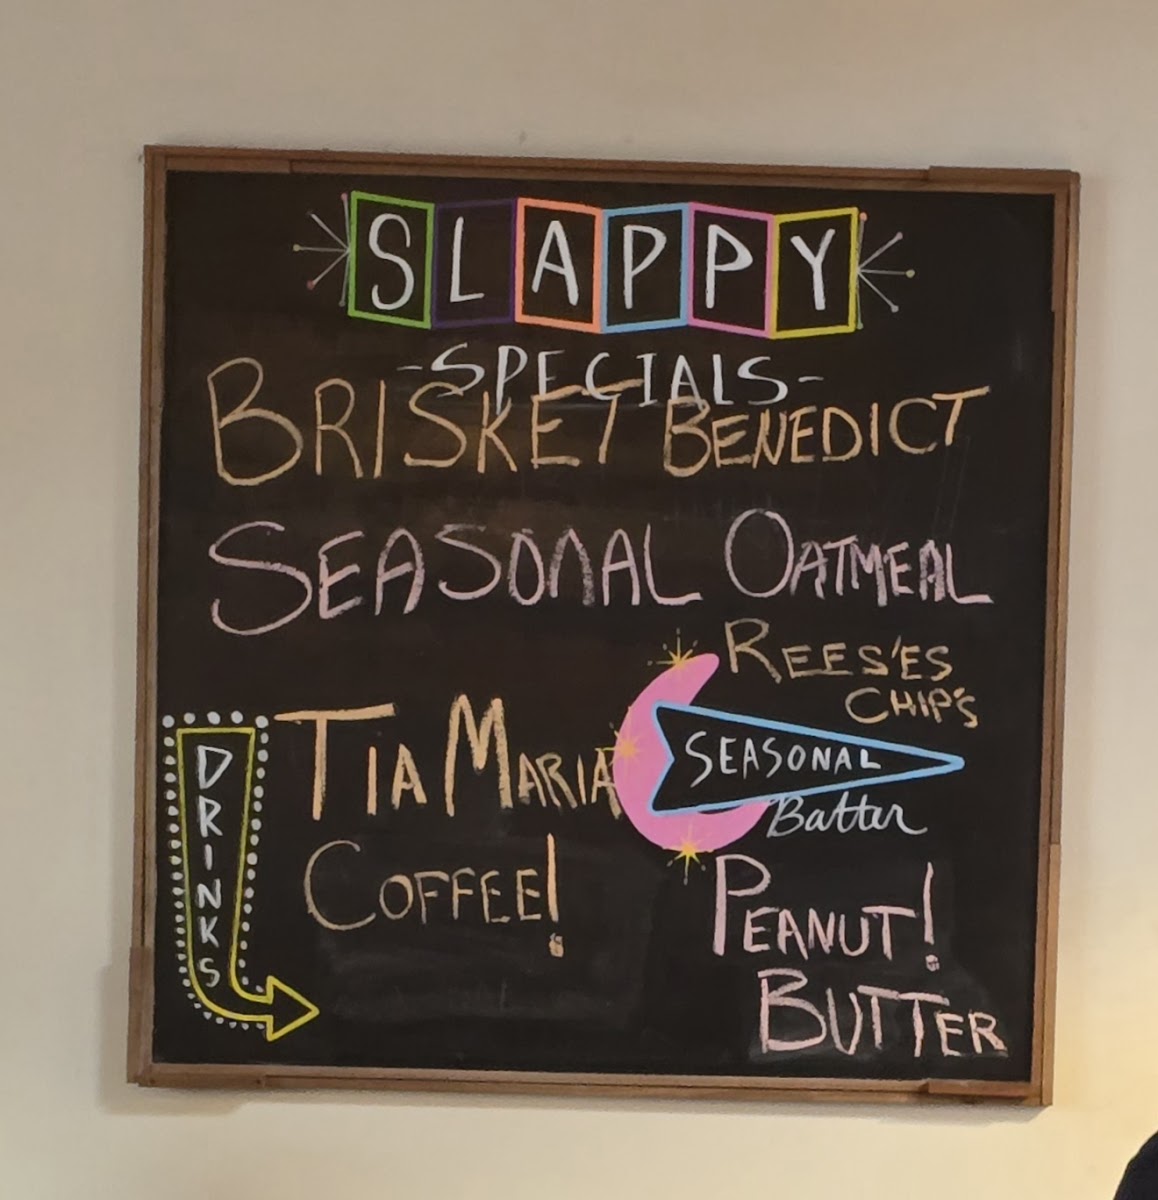 SLAPPY
-SPECIALS-
BRISKET BENEDICT
SEASONAL OATMEAL
REES'ES
CHIP'S
DRINKS
TIA MARIA
COFFEE!
SEASONAL
Batter
PEANUT!
BUTTER